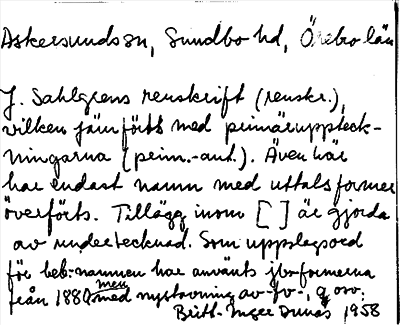 Askersunds sn, Sundbo hd, Örebro län
J. Sahlgrens renskrift (renskr.),
vilken jämförts med primäruppteck-
ningarna (prim.-ant.). Även här
har endast namn med uttalsformer
överförts. Tillägg inom [ ] är gjorda
av undertecknad. Som uppslagsord
för beb.-namnen har använts jbr-formerna
från 1880 men med nystavning av -fv-, q osv.
Britt-Inger 1958